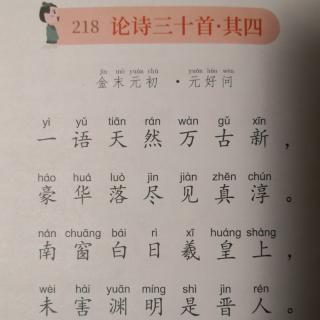 218 论诗三十首·其四
jīn mò yuán chū yuán hào wèn
金末元初·元好问
yì yǔ tiān rán wàn gǔ xīn
一语天然万古新，
háo huá luò jìn jiàn zhēn chún
豪华落尽见真淳。
nán chuāng bái rì xī huáng shàng
南窗白日羲皇上，
wèi hài yuān míng shì jìn rén
未害渊明是晋人。